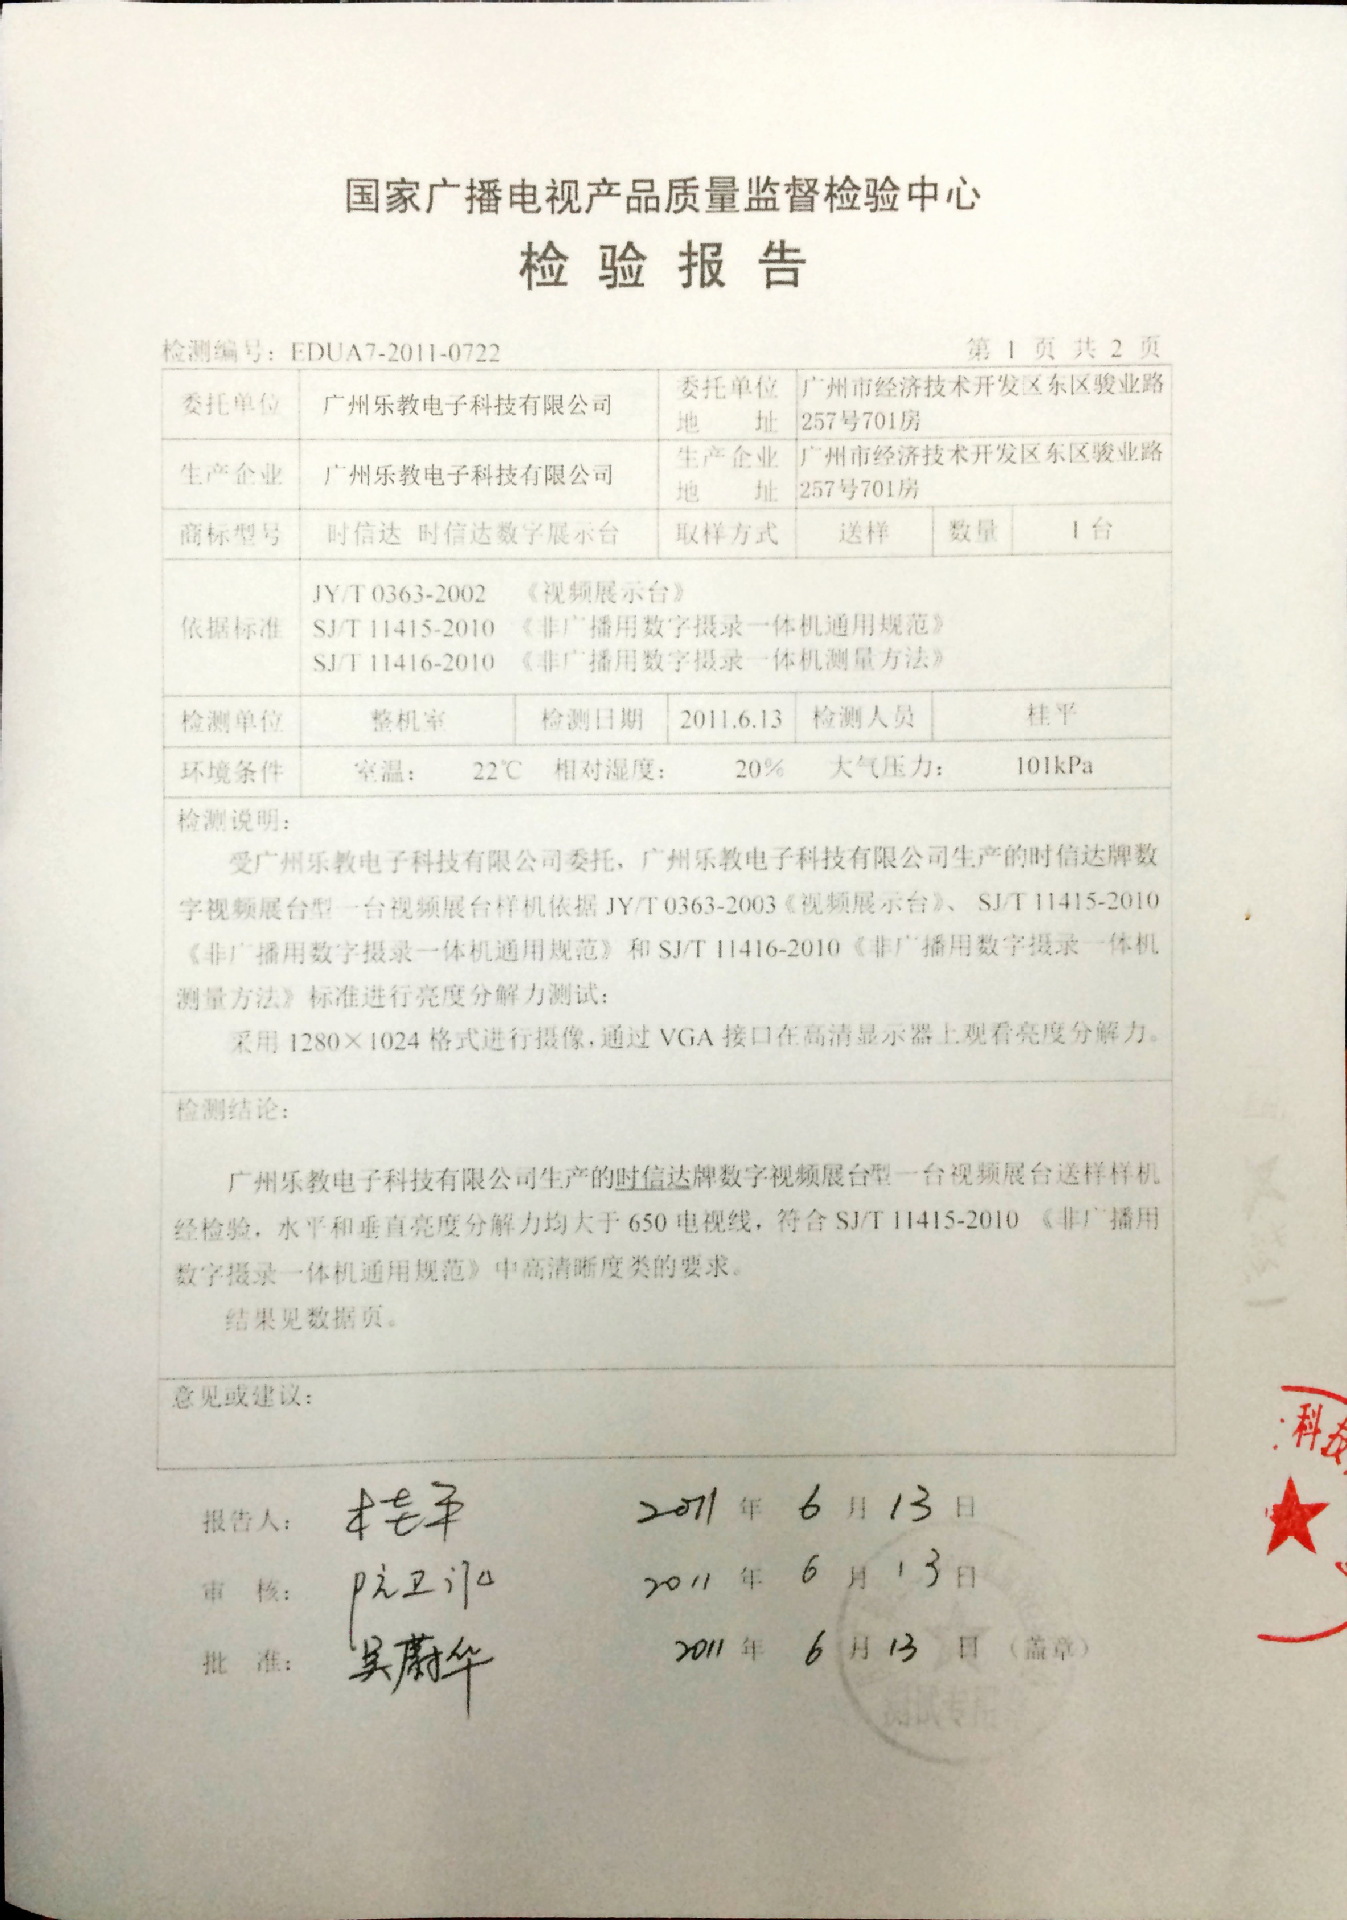 国家广播电视产品质量监督检验中心
检验报告
检测编号：EDUA7-2011-0722 第 1 页 共 2 页
委托单位 广州乐教电子科技有限公司 委托单位地址 广州市经济技术开发区东区骏业路
257号701房
生产企业 广州乐教电子科技有限公司 生产企业地址 广州市经济技术开发区东区骏业路
257号701房
商标型号 时信达 时信达数字展示台 取样方式 送样 数量 1 台
依据标准
JY/T 0363-2002 《视频展示台》
SJ/T 11415-2010 《非广播用数字摄录一体机通用规范》
SJ/T 11416-2010 《非广播用数字摄录一体机测量方法》
检测单位 整机室 检测日期 2011.6.13 检测人员 桂平
环境条件 室温： 22℃ 相对湿度： 20% 大气压力： 101kPa
检测说明：
受广州乐教电子科技有限公司委托，广州乐教电子科技有限公司生产的时信达牌数
字视频展台型一台视频展台样机依据 JY/T 0363-2003《视频展示台》、 SJ/T 11415-2010
《非广播用数字摄录一体机通用规范》和 SJ/T 11416-2010《非广播用数字摄录一体机
测量方法》标准进行亮度分解力测试：
采用 1280×1024 格式进行摄像，通过 VGA 接口在高清显示器上观看亮度分解力。
检测结论：
广州乐教电子科技有限公司生产的时信达牌数字视频展台型一台视频展台送样样机
经检验，水平和垂直亮度分解力均大于 650 电视线，符合 SJ/T 11415-2010 《非广播用
数字摄录一体机通用规范》中高清晰度类的要求。
结果见数据页。
意见或建议：
报告人： 桂平 2011 年 6 月 13 日
审 核： 阮卫泓 2011 年 6 月 13 日
批 准： 吴蔚华 2011 年 6 月 13 日 （盖章）
测试专用
科技